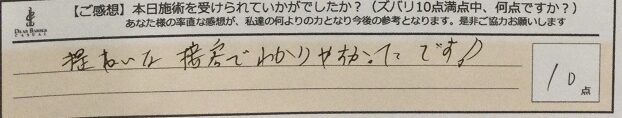 【ご感想】本日施術を受けられていかがでしたか？（ズバリ10点満点中、何点ですか？）
あなた様の率直な感想が、私達の何よりの力となり今後の参考となります。是非ご協力お願いします
DEAR BARBER
CASUAL
程ねいな 接客でわかりやすかったです♪
10点